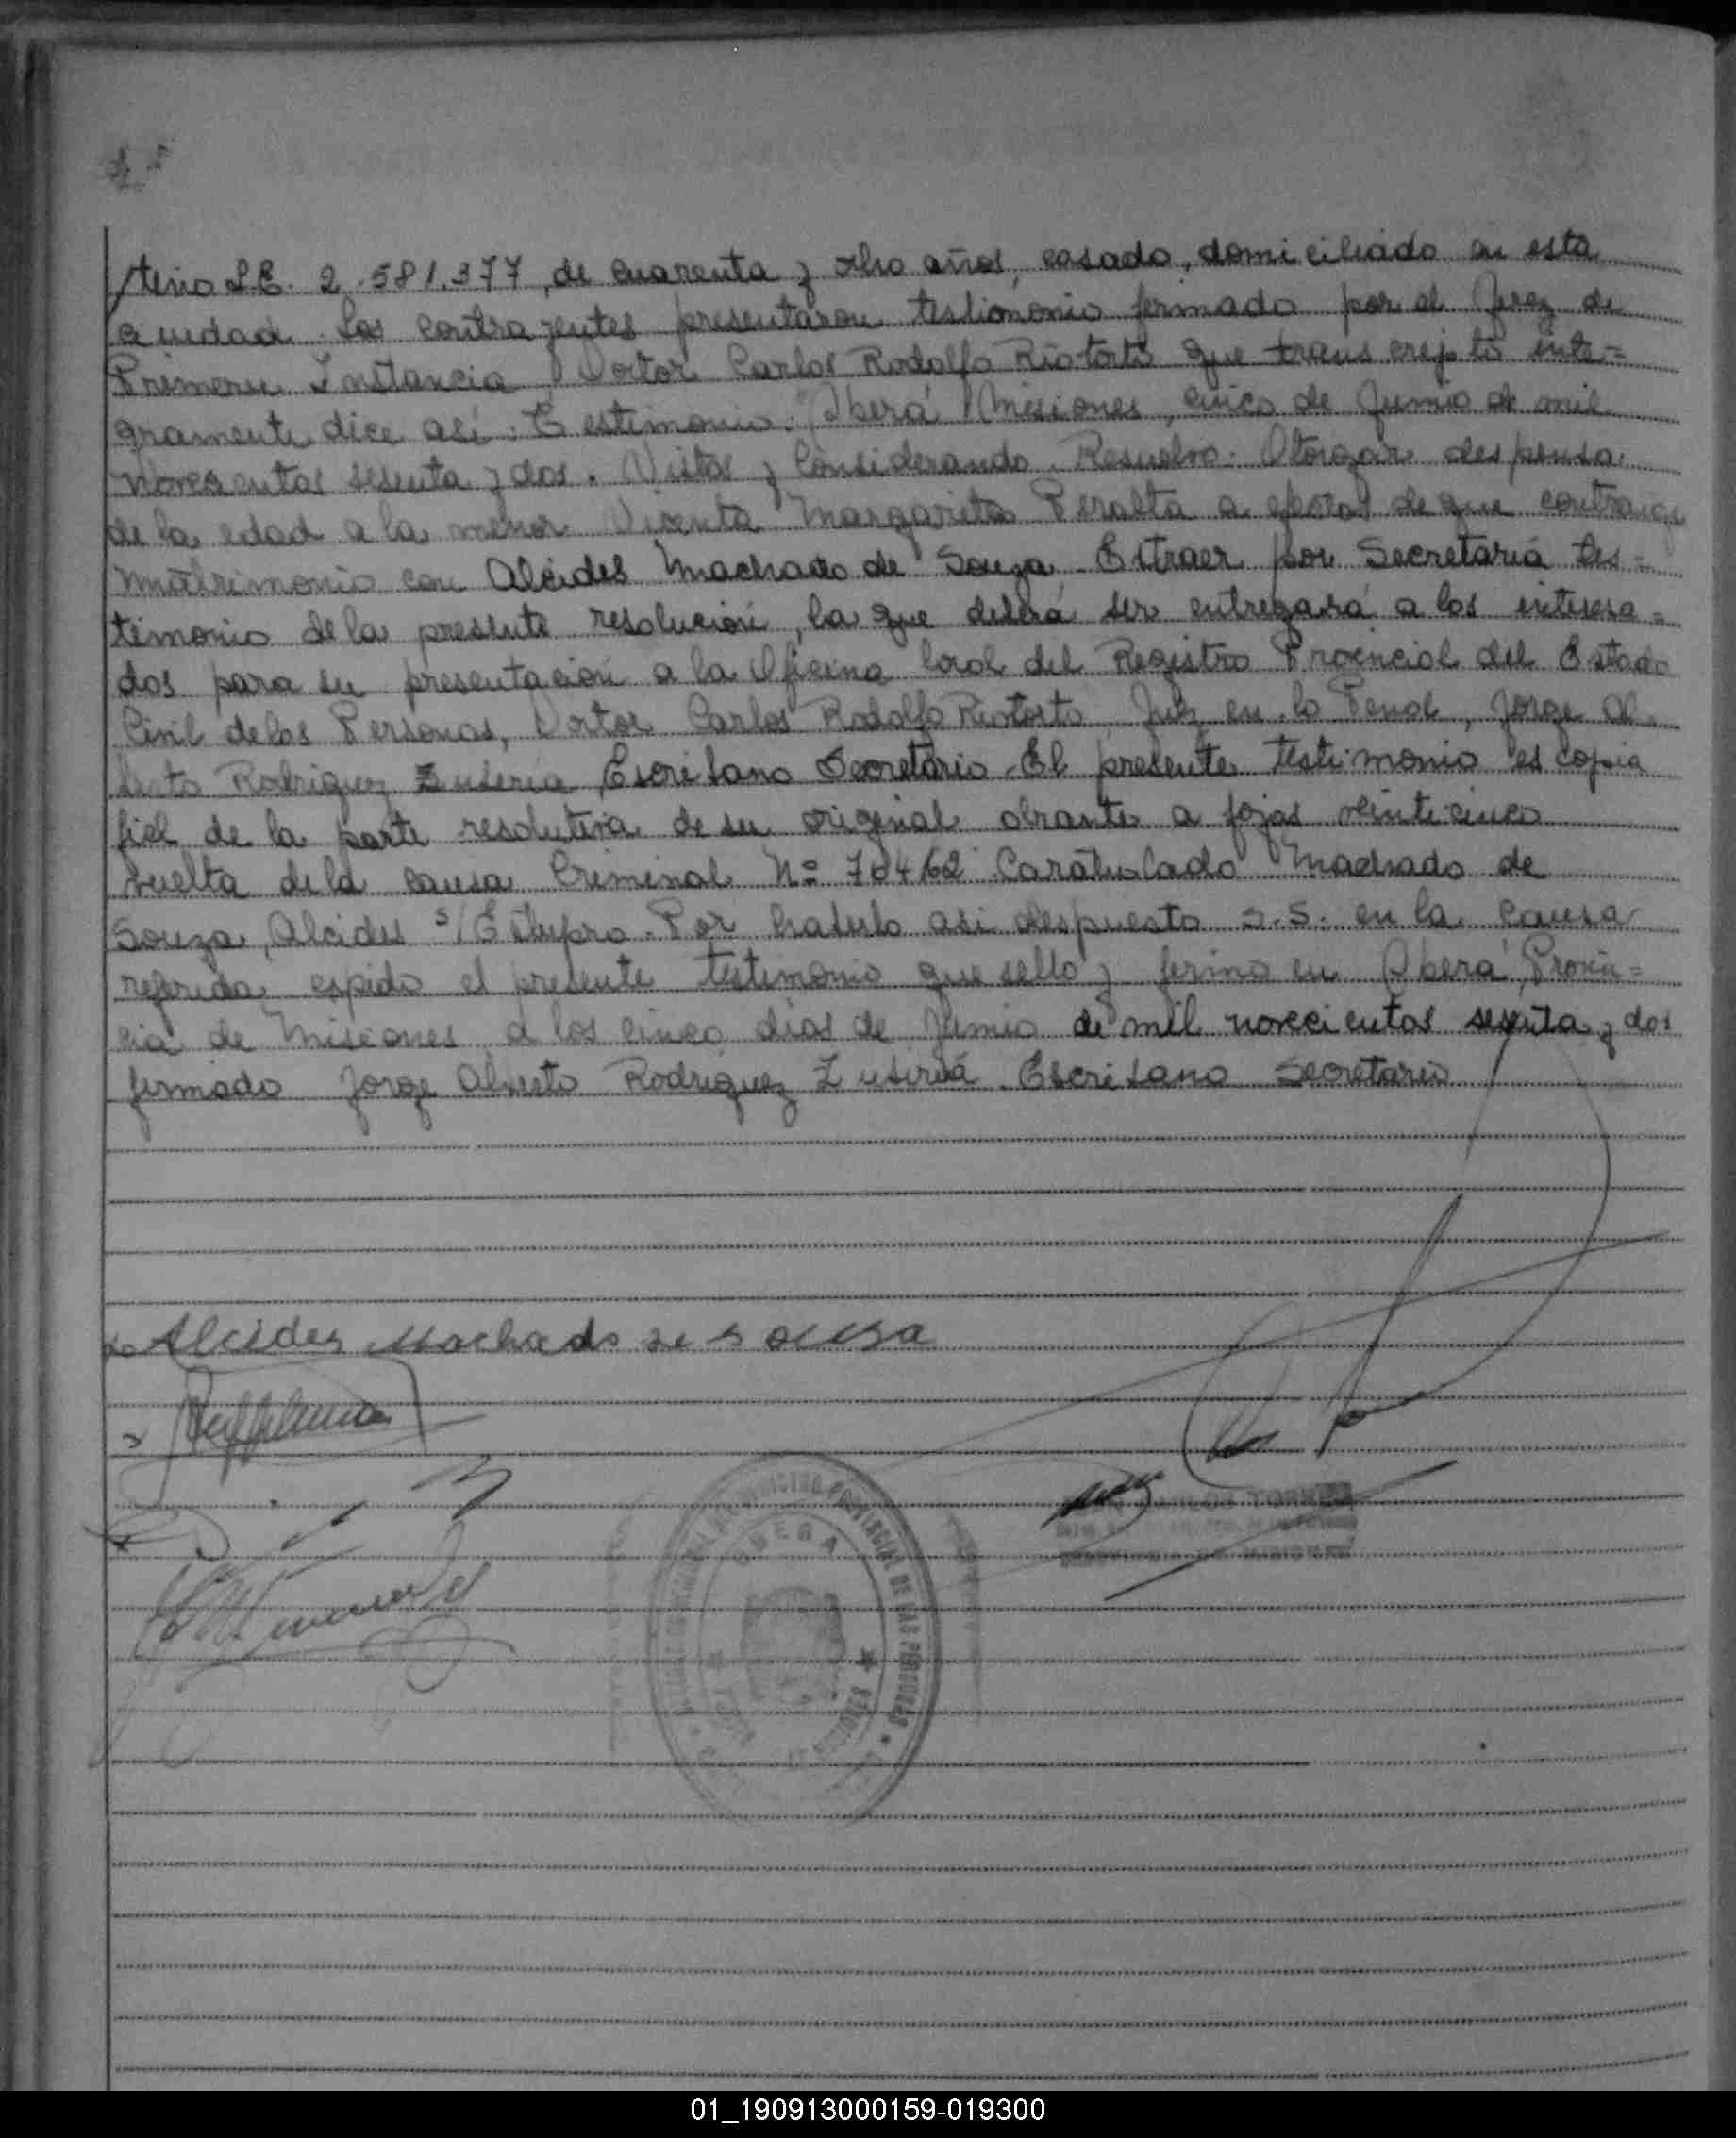 tino L.E. 2.581.377, de cuarenta y ocho años, casado, domiciliado en esta
ciudad. Los contrayentes presentaron testimonio firmado por el Juez de
Primera Instancia Doctor Carlos Rodolfo Riotorto que transcripto inte=
gramente dice así: Testimonio: "Oberá Misiones, cinco de Junio de mil
novecientos sesenta y dos. Vistos y Considerando. Resuelvo: Otorgar despensa
de la edad a la menor Vicenta Margarita Peralta a efectos de que contraiga
matrimonio con Alcides Machado de Souza. Extraer por Secretaría tes=
timonio de la presente resolución, la que deberá ser entregará a los interesa=
dos para su presentación a la Oficina local del Registro Provincial del Estado
Civil de las Personas, Doctor Carlos Rodolfo Riotorto Juez en lo Penal, Jorge Al
berto Rodriguez Escribano Secretario. El presente testimonio es copia
fiel de la parte resolutiva de su original obrante a fojas veinticinco
vuelta de la causa Criminal Nº 704/62 Caratulado Machado de
Souza, Alcides s/Estupro. Por haberlo asi despuesto S.S. en la causa
referida expido el presente testimonio que sello y firmo en Oberá, Provin=
cia de Misiones a los cinco dias de Junio de mil novecientos sesenta y dos
firmado Jorge Alberto Rodriguez Escribano Secretario
Alcides Machado de Souza
REGISTRO PROVINCIAL DE LAS PERSONAS
OBERA
TORRES
PROVINCIA DE MISIONES
01_190913000159-019300